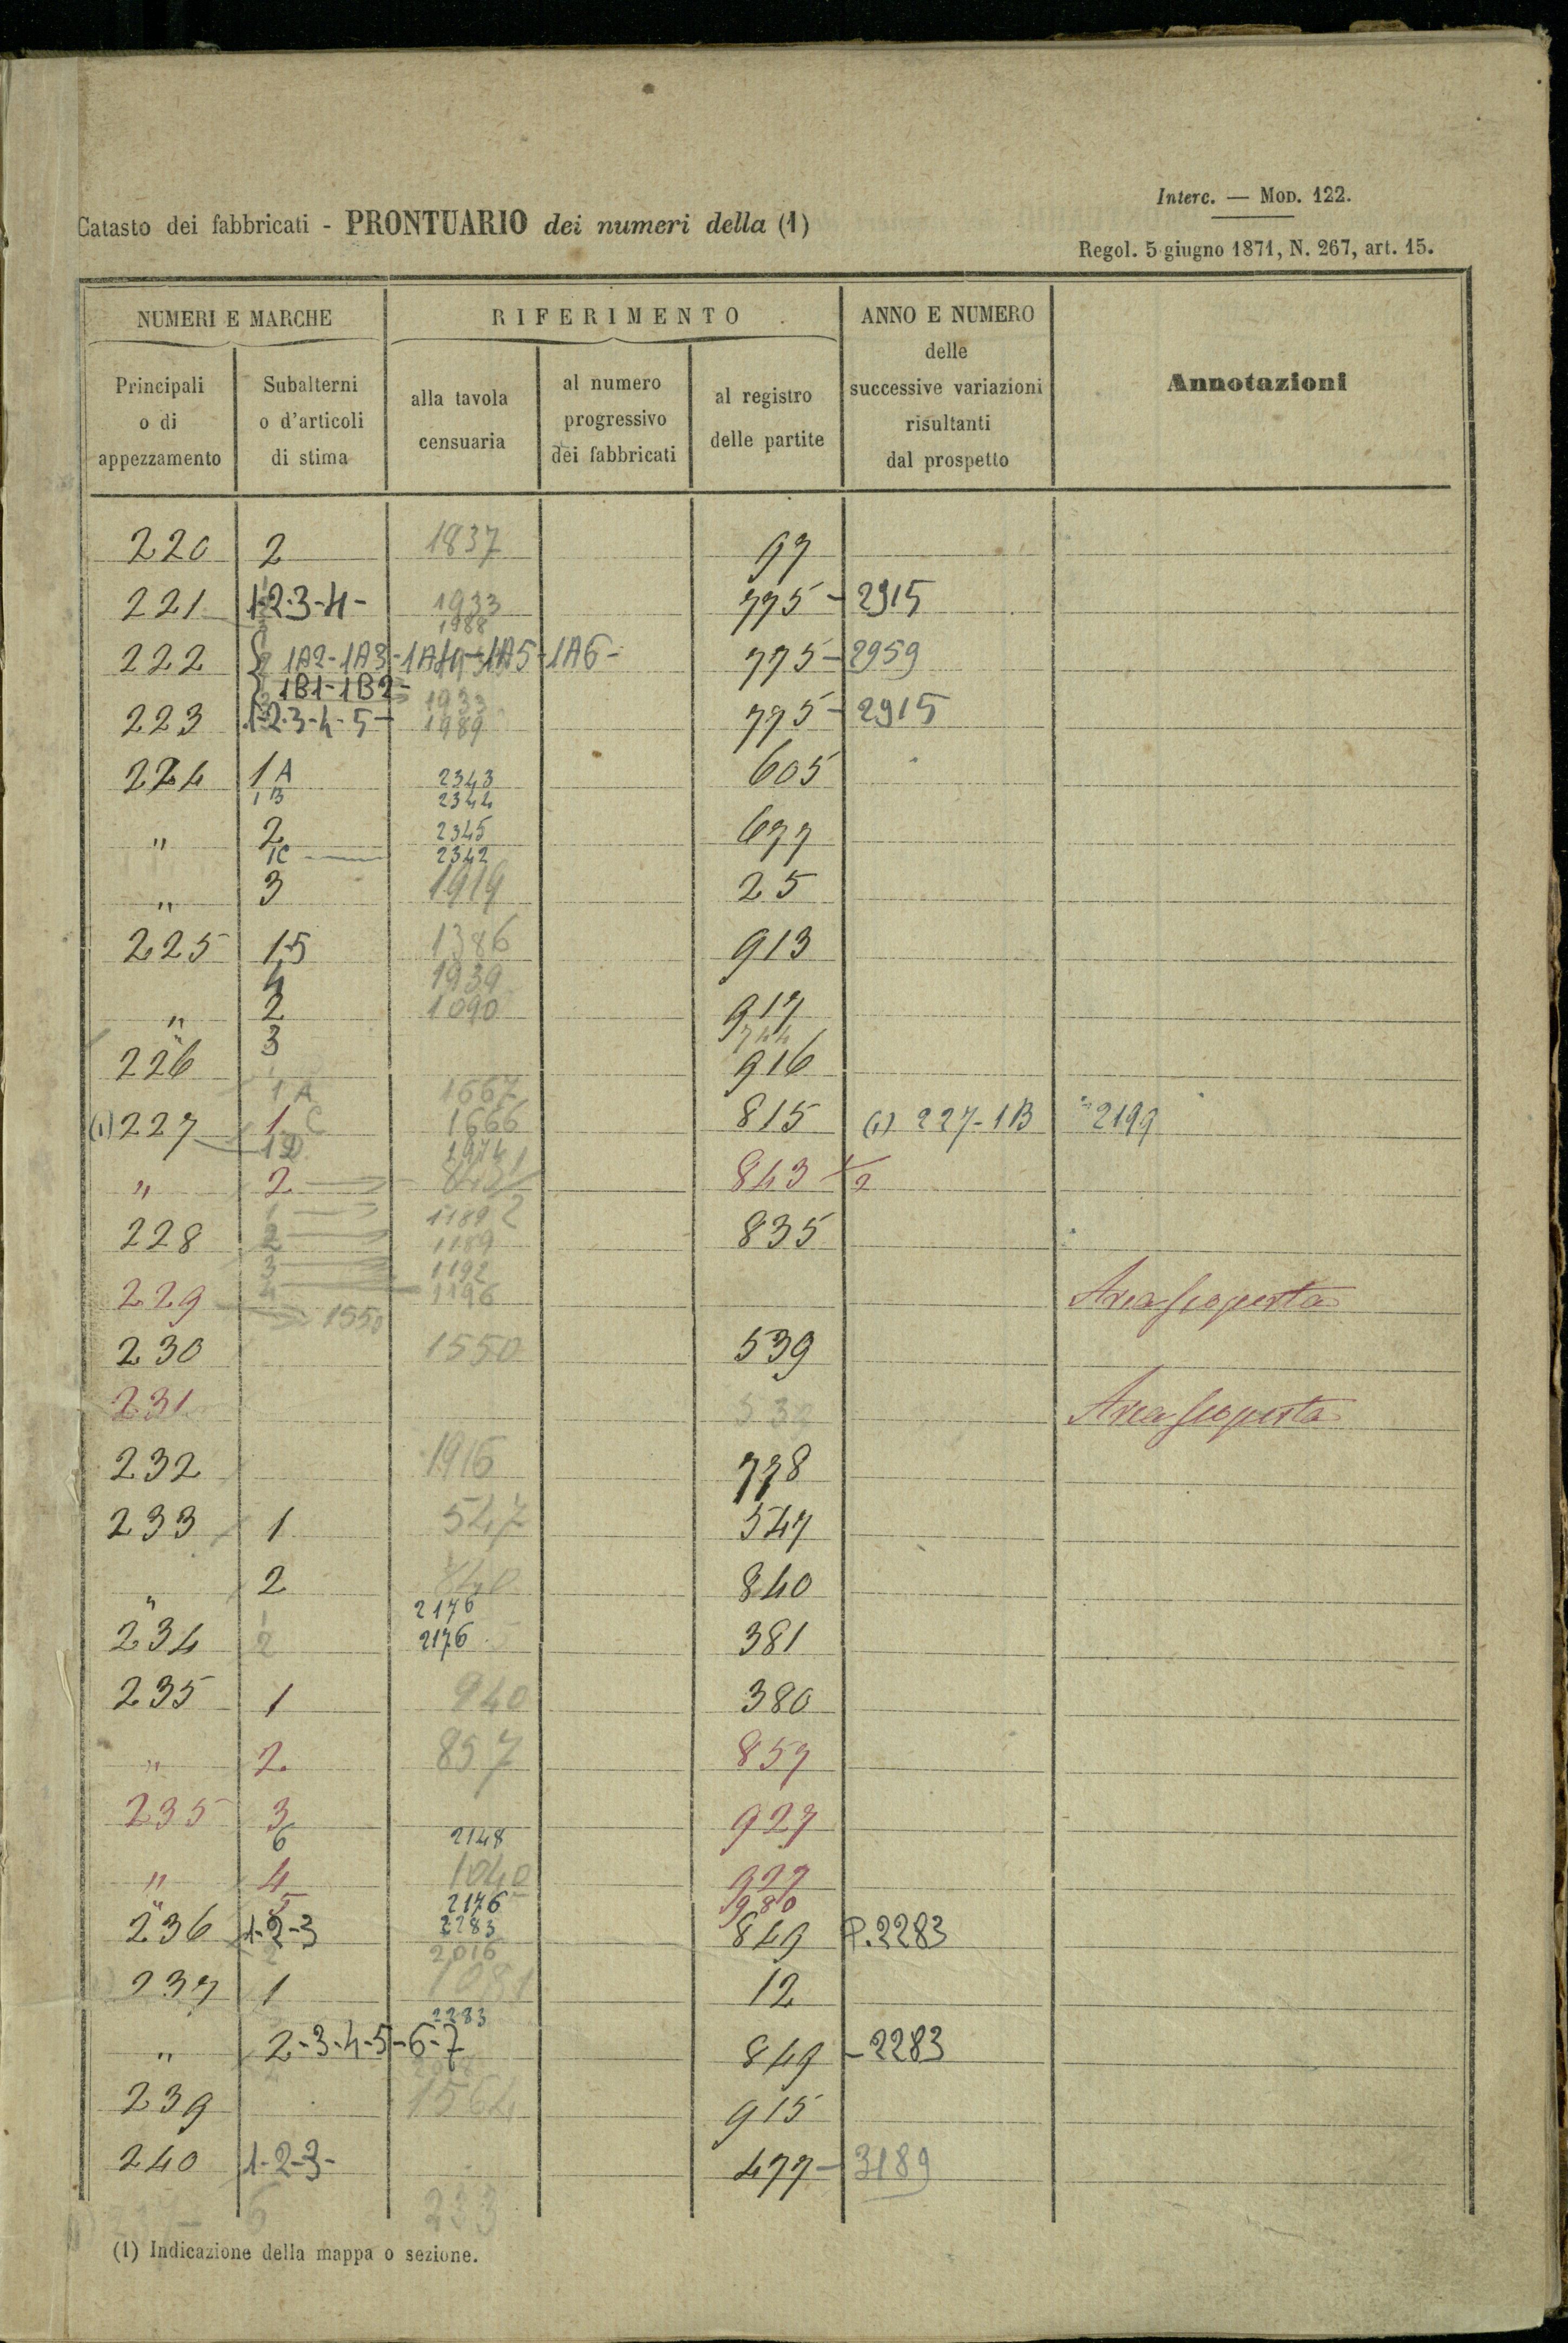 Interc. — MOD. 122.
Catasto dei fabbricati - PRONTUARIO dei numeri della (1)
Regol. 5 giugno 1871, N. 267, art. 15.
NUMERI E MARCHE RIFERIMENTO ANNO E NUMERO delle successive variazioni risultanti dal prospetto Annotazioni
Principali o di appezzamento Subalterni o d'articoli di stima alla tavola censuaria al numero progressivo dei fabbricati al registro delle partite
220 2 1837 97
221 1-2-3-4- 1933 775 - 2915
1988
222 1A2-1A3-1A4-1A5-1A6- 775 - 2959
1B1-1B2- 1933
223 1-2-3-4-5- 1989 775 - 2915
224 1A 2343 605
1B 2344
" 2 2345 677
1C 2342
" 3 1919 25
225 1-5 1386 913
4 1939
" 2 1090 917
" 3 744
226 916
1A 1667
(1) 227 1 C 1666 815 (1) 227-1B 2199
1D 1974
" 2 843 1/2
1 1189
228 2 1189 835
3 1192
229 4 1196 Area scoperta
1550
230 1550 539
231 539 Area scoperta
232 1916 778
233 1 547 547
" 2 840 840
1 2176
234 2 2176 381
235 1 940 380
" 2 857 857
235 3 927
6 2148
" 4 1040 927
" 5 2176 980
236 1-2-3 2283 849 P. 2283
2 2016
237 1 1081 12
2283
" 2-3-4-5-6-7 849 - 2283
239 1564 915
240 1-2-3- 477 - 3189
237 6 233
(1) Indicazione della mappa o sezione.